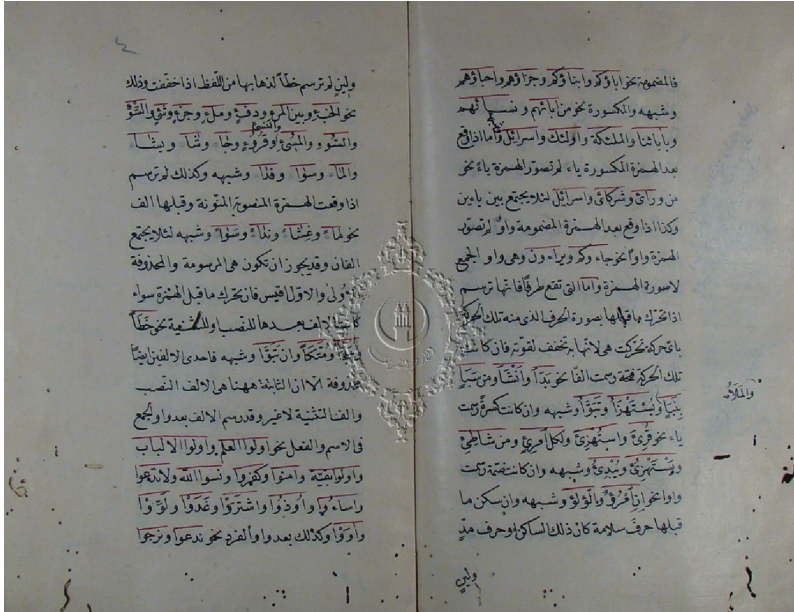 فالمضمومة نحو اباؤكم وابناؤكم وجزاؤهم واحباؤهم
وشبهه والمكسورة نحو من ابائهم ونسائهم
وبابائنا والملئكة واولئك واسرائل واما اذا وقع
بعد الهمزة المكسورة ياء لم تصور الهمزة ياء نحو
من ورائ وشركائ واسرائل لئلا يجتمع بين ياءين
وكذا اذا وقع بعد الهمزة المضمومة واو لم تصور
الهمزة واوا نحو جاءوكم ويراءون وهى واو الجمع
لا صورة الهمزة واما التى تقع طرفا فانها ترسم
اذا تحرك ما قبلها بصورة الحرف الذى منه تلك الحركة
باى حركة تحركت هى لانها به تخفف لقوته فان كانت
تلك الحركة فتحة رسمت الفا نحو بدأ وأنشأ ومن سبأ
بنبأ ويستهزأ وتبوأ وشبهه وان كانت كسرة رسمت
ياء نحو قرئ واستهزئ ولكل امرئ ومن شاطئ
ويستهزئ ويبدئ وشبهه وان كانت ضمة رسمت
واوا نحو ان امرؤ واللؤلؤ وشبهه وان سكن ما
قبلها حرف سلامة كان ذلك الساكن او حرف مد
والملأ
ولين
ولين لم ترسم خطا لذهابها من اللفظ اذا خففت وذلك
نحو الخبء وبين المرء ودفء وملء وجزء وشئ والسوء
والسوء والمسئ وقروء ولجاء وشاء ويشاء
والنسئ
والماء وسواء وشبهه وكذلك لم ترسم
اذا وقعت الهمزة المنصوبة المنونة وقبلها الف
نحو لماء وغثاء ونداء وسواء وشبهه لئلا يجتمع
الفان وقد يجوز ان تكون هى المرسومة والمحذوفة
الاولى والاول اقيس فان تحرك ما قبل الهمزة سواء
كانت الالف بعدها للنصب او للتثنية نحو خطأ
ومتكأ وان تبوأ وشبهه فاحدى الالفين ايضا
محذوفة الا ان الثابتة ههنا هى الالف النصب
والف التثنية لا غير وقد رسم الالف بعد واو الجمع
فى الاسم والفعل نحو اولوا العلم واولوا الالباب
واولوا بقية وامنوا وكفروا ونسوا الله ولا تدعوا
واساءوا واوذوا واشتروا وغدوا ولووا
واووا وكذلك بعد واو الفرد نحو ندعوا ونرجوا